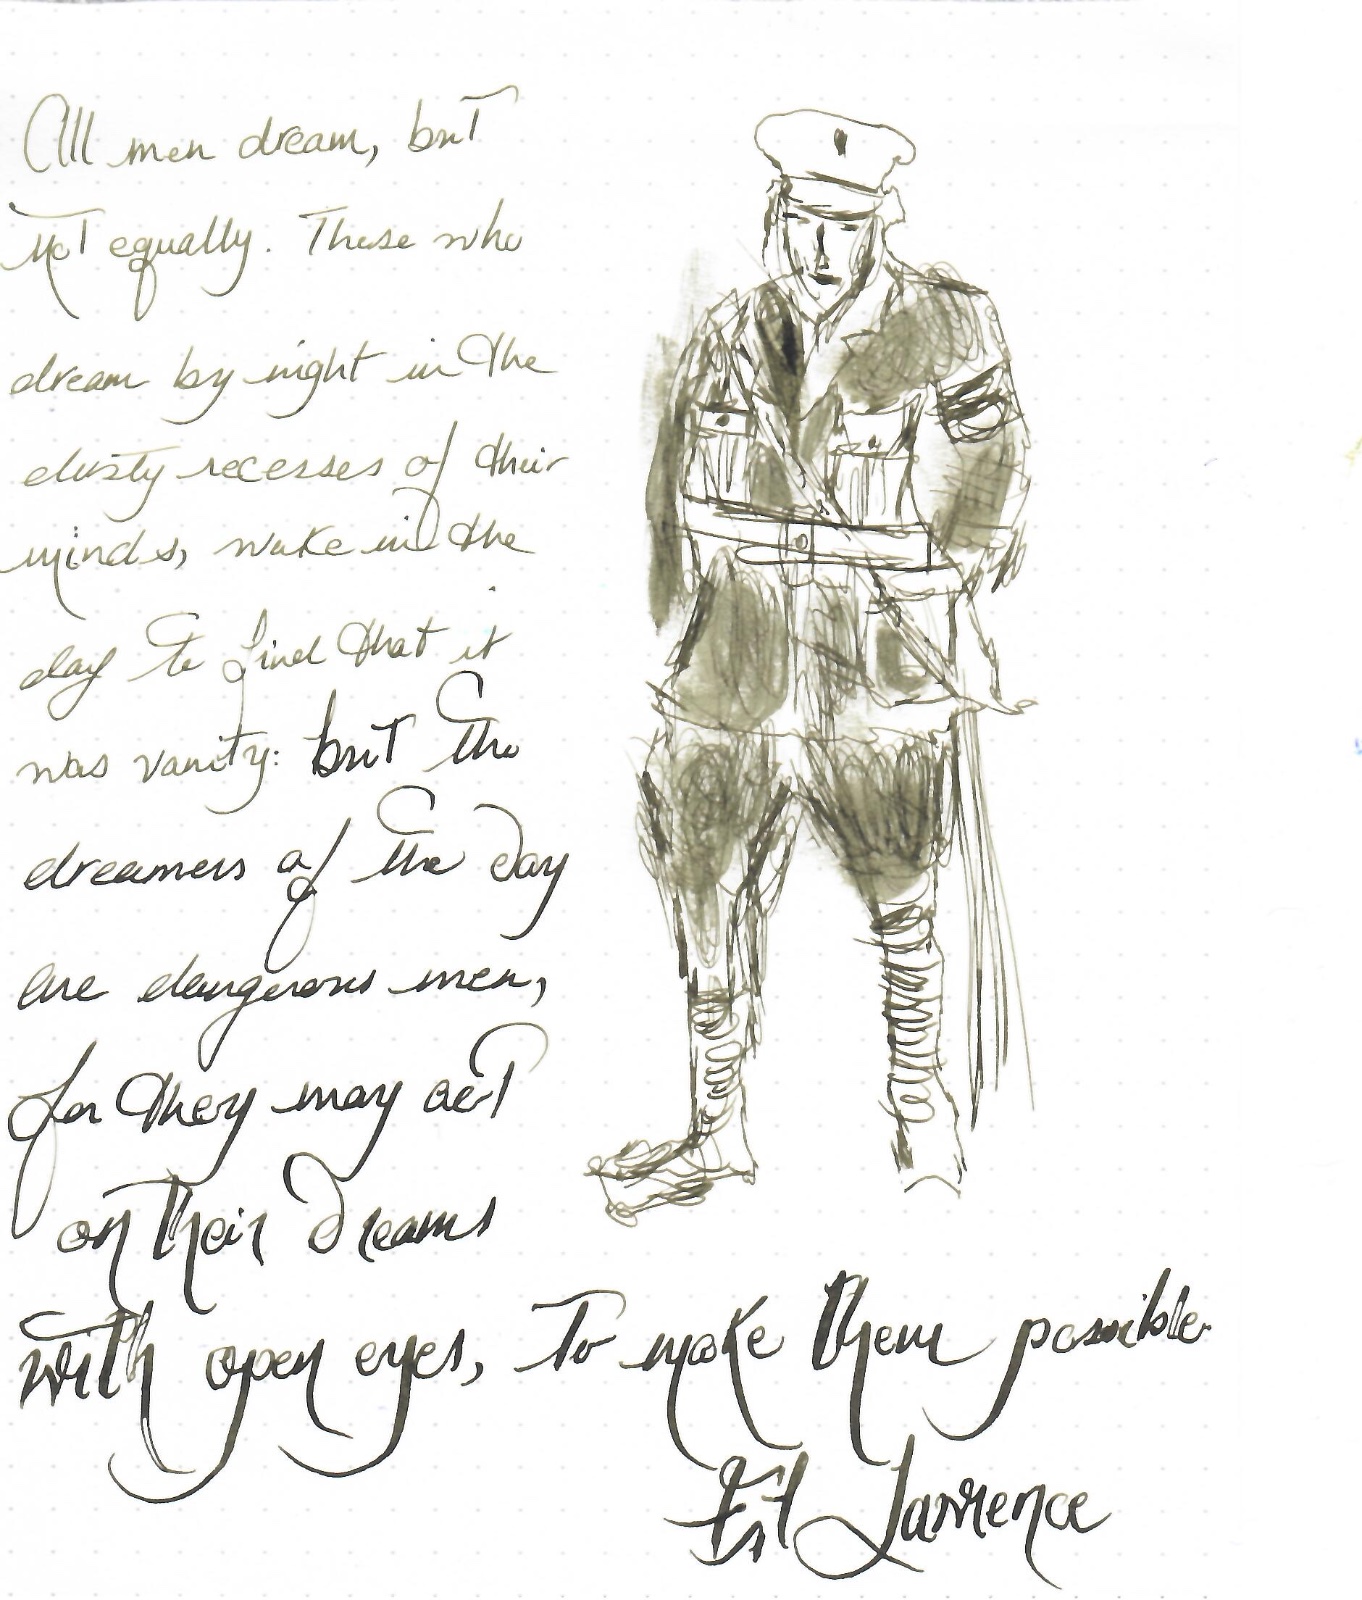 All men dream, but
not equally. Those who
dream by night in the
dusty recesses of their
minds, wake in the
day to find that it
was vanity: but the
dreamers of the day
are dangerous men,
for they may act
on their dreams
with open eyes, to make them possible
Lawrence